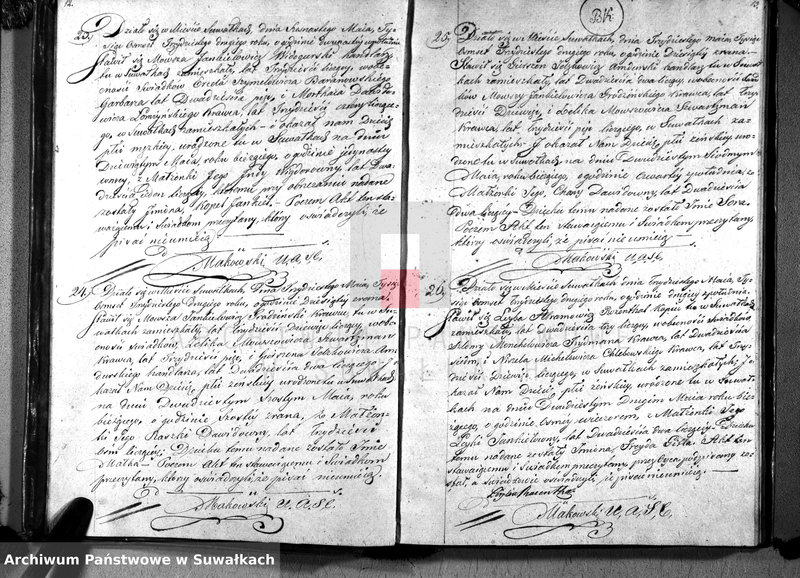 12.
23. Działo się w Mieście Suwałkach, dnia Maja, Ty-
siąc Osmset Trzydziestego drugiego roku, o godzinie
Stawił się Mowsza Jankielewicz handlarz
tu w Suwałkach zamieszkały, lat Trzydzieści liczący, w obe-
cności Świadków Szymelowicza Baranowskiego
Garbarza lat Dwadzieścia pięć, i Mortchaia
Krawca, lat Trzydzieści liczące-
go, w Suwałkach zamieszkałych – i okazał nam Dziecię
płci męzkiey, urodzone tu w Suwałkach na dniu
Dziewiątym Maja, roku bieżącego, o godzinie jedynastey
z Małżonki Jego lat Dwa-
dzieścia liczącey, któremu przy obrzezaniu nadane
zostały Jmiona, Kopel Jankiel. – Poczem Akt ten sta-
waiącemu i Świadkom przeczytany, który oświadczył, że
pisać nieumieią
Makowski U.A.S.C.
24. Działo się w Mieście Suwałkach, Dnia Trzydziestego Maja, Tysiąc
Osmset Trzydziestego drugiego roku, o godzinie Dziesiątey zrana,
Stawił się Mowsza Jankielewicz Grodziński Krawiec, tu w Su-
wałkach zamieszkały, lat Trzydzieści Dziewięć liczący, w obe-
cności Świadków, LeLika Mowszewicza Szwartzman
Krawca, lat Trzydzieści pięć, i Gierszona Joselowicza Am-
durskiego handlarza, lat Dwadzieścia dwa liczącego; i o-
kazał Nam Dziecię, płci żeńskiey urodzone tu w Suwałkach
na dniu Dwudziestym Szostym Maja, roku
bieżącego, o godzinie Szostey zrana, z Małżon-
ki Jego Dawidowny, lat Trzydzieści
liczącey; Dziecku temu nadane zostało Jmie
Małka – Poczem Akt ten Stawaiącemu i Świadkom
przeczytany, który oświadczył, że pisać nieumieią.
Makowski U.A.S.C.
13
25. Działo się w Mieście Suwałkach, dnia Trzydziestego Maja Tysiąc
Osmset Trzydziestego drugiego roku, o godzinie Dziesiątey zrana –
Stawił się Gierszon Joselowicz Amdurski handlarz tu w Suwał-
kach zamieszkały, lat Dwadzieścia dwa liczący, w obecności Świad-
ków Mowszy Jankielewicza Grodzińskiego Krawca, lat Trzy-
dzieści Dziewięć, i Lelika Mowszewicza Szwartzman
Krawca, lat Trzydzieści pięć liczącego, w Suwałkach za-
mieszkałych – i okazał Nam Dziecię, płci żeńskiey uro-
dzone tu w Suwałkach na dniu Dwudziestym Siódmym
Maja, roku bieżącego, o godzinie Czwartey z południa, z
Małżonki Jego, Chawy Dawidowny, lat Dwadzieścia
dwa liczącey – Dziecku temu nadane zostało Jmie Sora.
Poczem Akt ten Stawaiącemu i Świadkom przeczytany,
który oświadczył, że pisać nieumieią
Makowski U.A.S.C.
26. Działo się w Mieście Suwałkach dnia Trzydziestego Maja, Ty-
siąc Osmset Trzydziestego drugiego roku, o godzinie drugiey z południa.
Stawił się Leyba Abramowicz Rozenthal Kupiec tu w Suwałkach
zamieszkały, lat Dwadzieścia trzy liczący, w obecności Świadków
Szlomy Mendelewicza Frydmana Krawca, lat Dwadzieścia
i Nosela Michelewicza Chlebowskiego Krawca, lat Trzy-
dzieści Dziewięć liczącego, w Suwałkach zamieszkałych; i o-
kazał Nam Dziecię, płci żeńskiey, urodzone tu w Suwał-
kach na dniu Dwudziestym Drugim Maja roku bieżą-
cego, o godzinie Osmey wieczorem, z Małżonki Jego
Jankielowny, lat Dwadzieścia dwa liczącey – Dziecku
temu nadane zostały Jmiona, Frayda Akt ten
Stawaiącemu i Świadkom przeczytany, przez Oyca podpisany zo-
stał, a Świadkowie oświadczyli, że pisać nieumieią.
Makowski U.A.S.C.
Archiwum Państwowe w Suwałkach